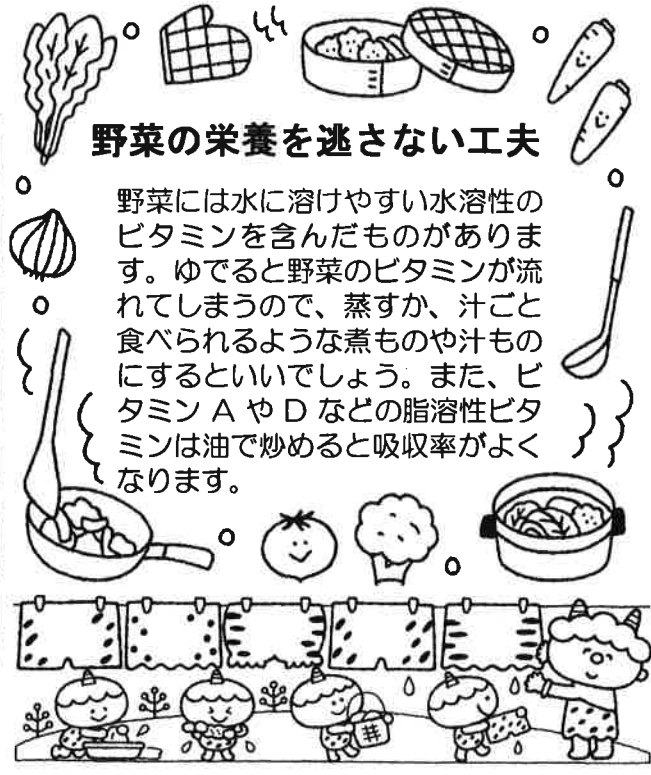 野菜の栄養を逃さない工夫
野菜には水に溶けやすい水溶性の
ビタミンを含んだものがありま
す。ゆでると野菜のビタミンが流
れてしまうので、蒸すか、汁ごと
食べられるような煮ものや汁もの
にするといいでしょう。また、ビ
タミン A や D などの脂溶性ビタ
ミンは油で炒めると吸収率がよく
なります。